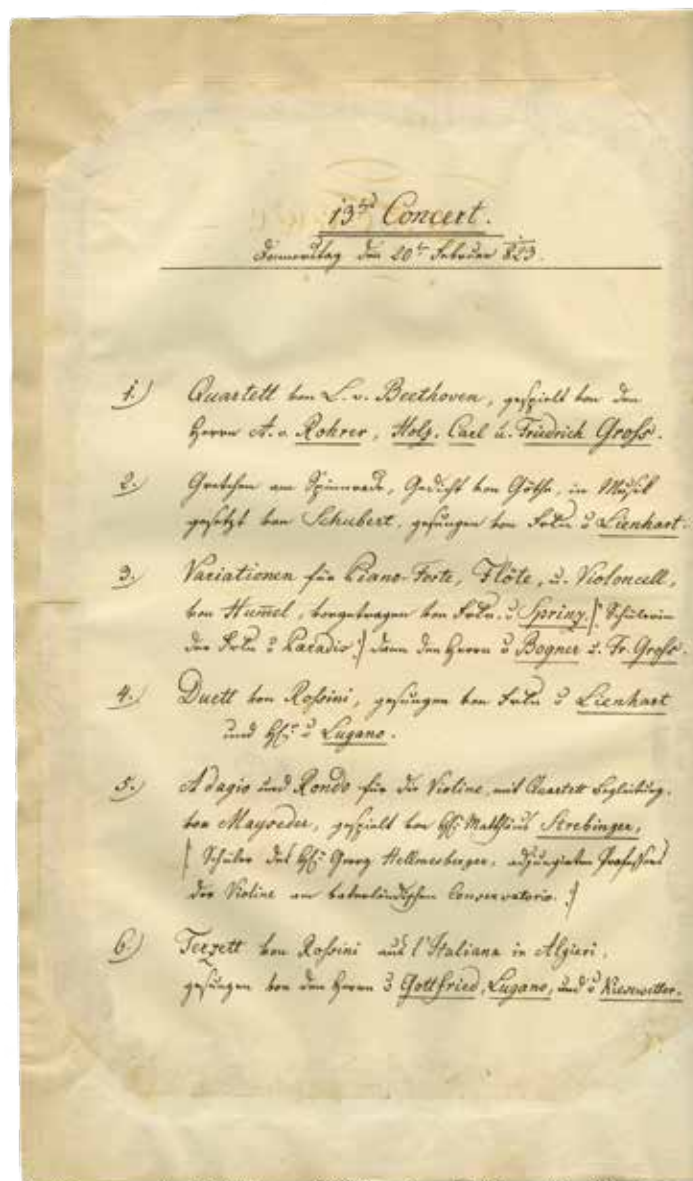 13tes Concert.
Donnerstag den 20t Februar 823.
1.) Quartett von L. v. Beethoven, gespielt von den
Herrn A. v. Rohrer, Holz, Carl u. Friedrich Groß.
2.) Gretchen am Spinnrade, Gedicht von Göthe, in Musik
gesetzt von Schubert, gesungen von Frln v Lienhart.
3.) Variationen für Piano-Forte, Flöte, u. Violoncell,
von Hummel, vorgetragen von Frln. v Spring, /: Schülerin
der Frln v Paradis :/ dann den Herrn v Bogner u. Fr. Groß.
4.) Duett von Roßini, gesungen von Frln v Lienhart
und H: v Lugano.
5.) Adagio und Rondo für die Violine, mit Quartett Begleitung,
von Mayseder, gespielt von H: Matthäus Strebinger,
/: Schüler des H: Georg Hellmesberger, adjungirten Professors
der Violine am vaterländischen Conservatorio. :/
6.) Terzett von Roßini aus l'Italiana in Algieri,
gesungen von den Herrn Gottfried, Lugano, und v Kiesewetter.